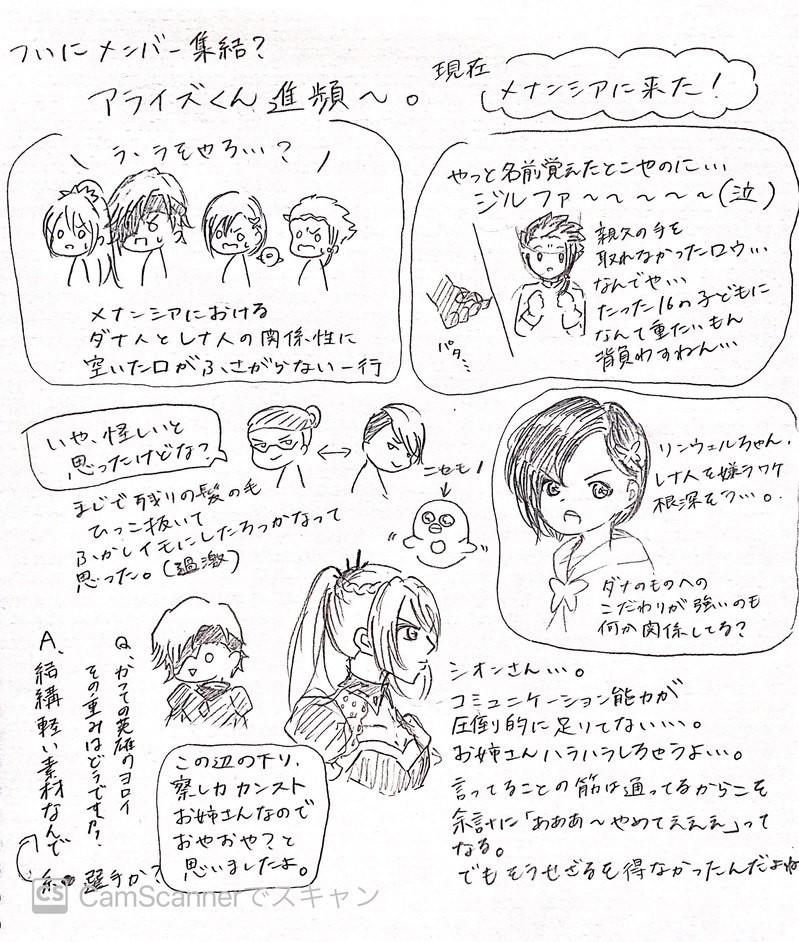 ついにメンバー集結?
アライズくん進頻〜。
現在
メナンシアに来た!
う、うそやろ…?
メナンシアにおける
ダナ人とレナ人の関係性に
空いた口がふさがらない一行
やっと名前覚えたとこやのに…
ジルファ〜〜〜〜〜(泣)
親父の手を
取れなかったロウ…
なんでや…
たった16の子どもに
なんて重たいもん
背負わすねん…
パタ…
いや、怪しいと
思ったけどな?
まじで残りの髪の毛
ひっこ抜いて
ふかしイモにしたろっかなって
思った。(過激)
ニセモノ
リンウェルちゃん、
レナ人を嫌うワケ
根深そう…。
ダナのものへの
こだわりが強いのも
何か関係してる?
シオンさん…。
コミュニケーション能力が
圧倒的に足りてない…。
お姉さんハラハラしちゃうよ…。
言ってることの筋は通ってるからこそ
余計に「あああ〜やめてえええ」って
なる。
でもそうせざるを得なかったんだよね
Q、かつての英雄のヨロイ
その重みはどうですか?
A、結構軽い素材なんで
選手か?
この辺の下り、
察し力カンスト
お姉さんなので
おやおや?と
思いましたよ。
CS CamScannerでスキャン